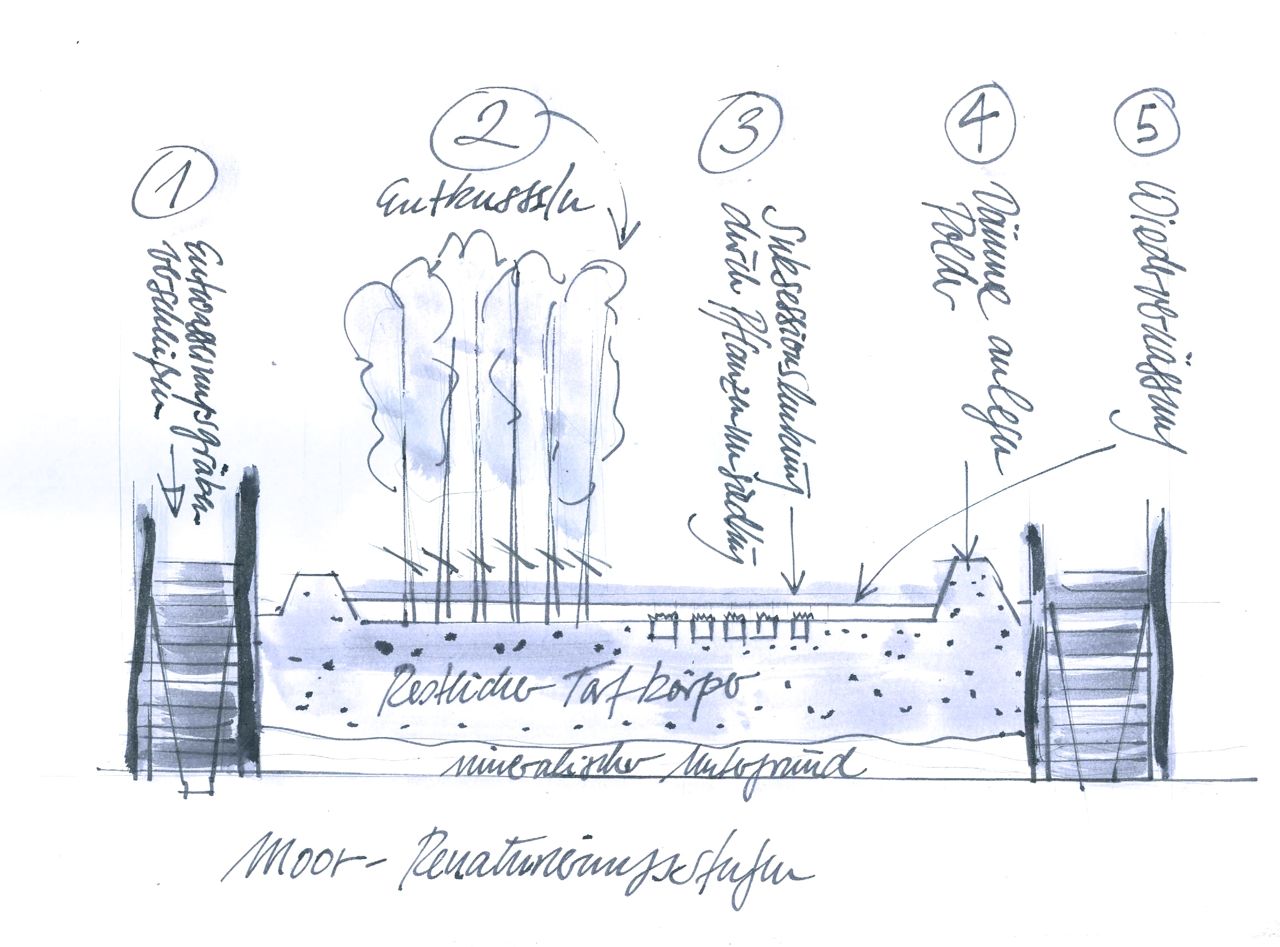 1
Entwässerungsgräben
verschließen
2
Entkusseln
3
Sukzessionslenkung
durch Pflanzenansiedlung
4
Dämme anlegen
Polder
5
Wiedervernässung
Restlicher Torfkörper
mineralischer Untergrund
Moor-Renaturierungsstufen